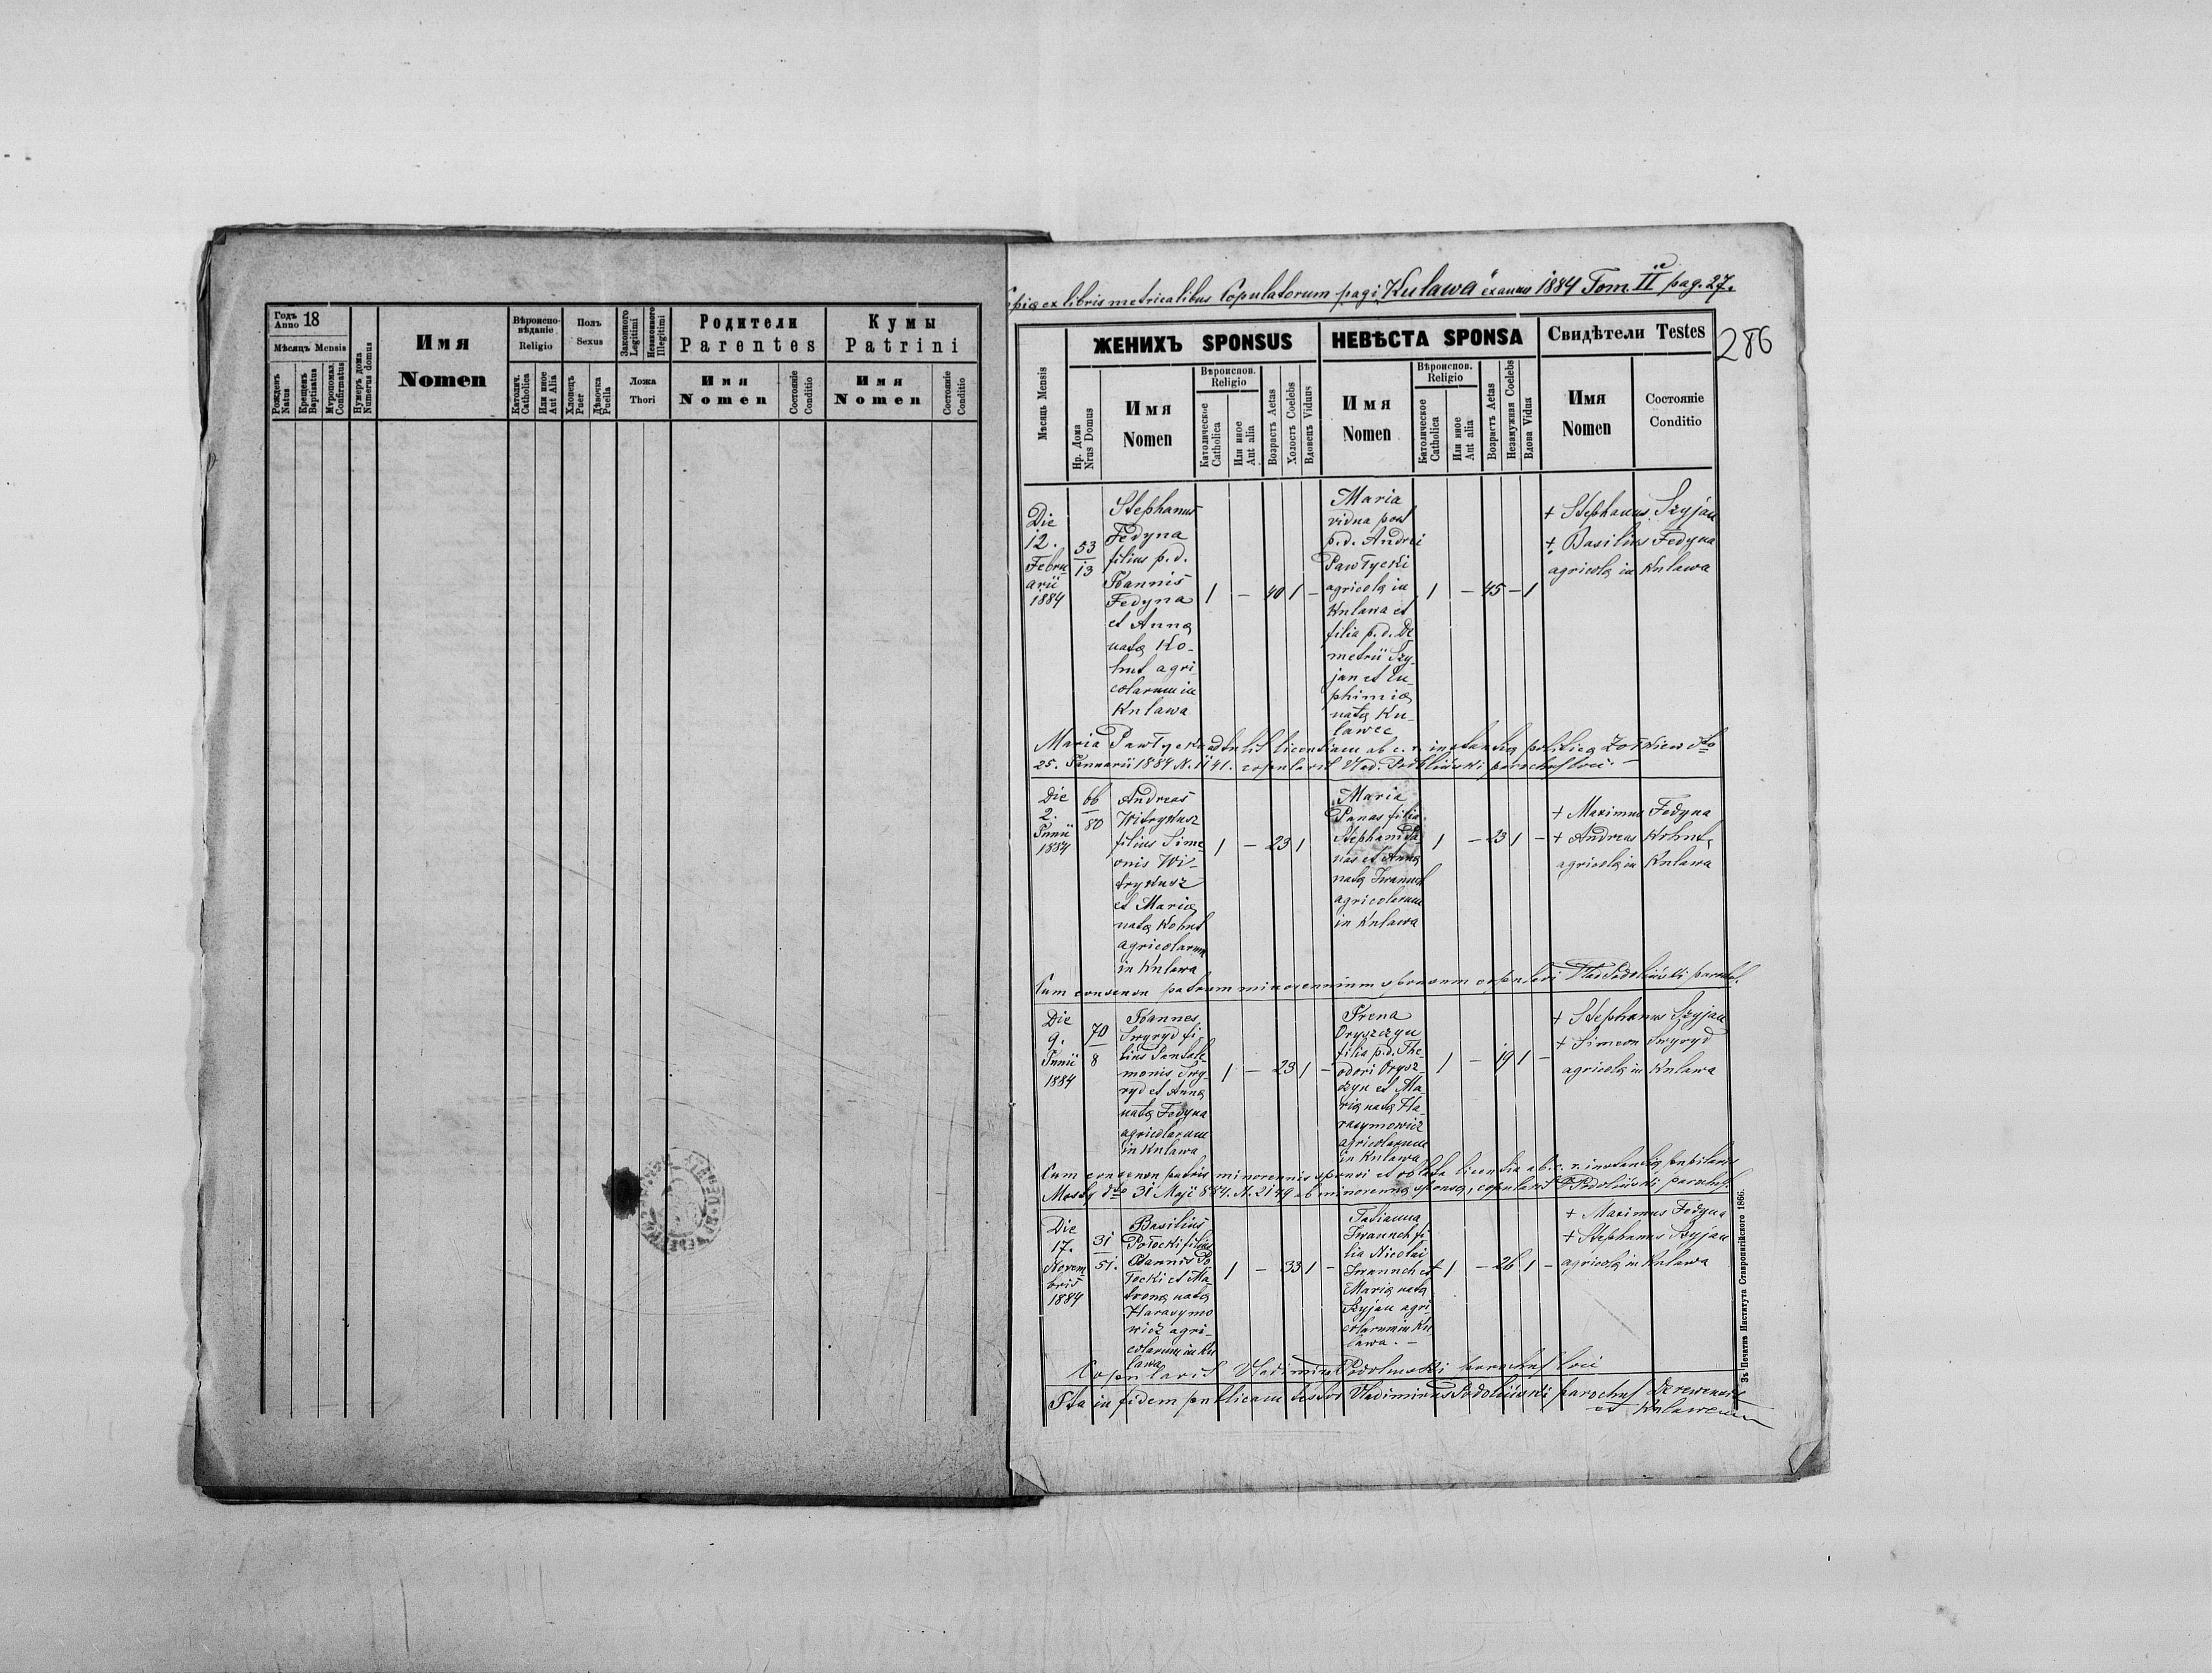 Годъ Anno 18
Мѣсяцъ Mensis
Рожденъ Natus
Крещенъ Baptisatus
Мѵропомаз. Confirmatus
Нумеръ дома Numerus domus
Имя
Nomen
Вѣроиспо-
вѣданіе
Religio
Католич. Catholica
Или иное Aut Alia
Полъ
Sexus
Хлопецъ Puer
Дѣвочка Puella
Законного Legitimi
Незаконного Illegitimi
Ложа
Thori
Родители
Parentes
Имя
Nomen
Состояніе Conditio
Кумы
Patrini
Имя
Nomen
Состояніе Conditio
ex libris metricalibus Copulatorum pagi "Kulawa" ex anno 1884 Tom. II pag. 27.
286
Мѣсяцъ Mensis
Нр. Дома Nrus Domus
ЖЕНИХЪ SPONSUS
Имя
Nomen
Вѣроиспов.
Religio
Католическое Catholica
Или иное Aut alia
Возрастъ Aetas
Холостъ Coelebs
Вдовецъ Viduus
НЕВѢСТА SPONSA
Имя
Nomen
Вѣроиспов.
Religio
Католическое Catholica
Или иное Aut alia
Возрастъ Aetas
Незамужная Coelebs
Вдова Vidua
Свидѣтели Testes
Имя
Nomen
Состояніе
Conditio
Die
12.
Febru
arii
1884
53
13
Stephanus
Fedyna
filius p.d.
Joannis
Fedyna
et Anna
nata Ko-
hut agri
colarum in
Kulawa
1 – 40 1 –
Maria
vidua post
p.d. Andrei
Pawłycki
agricola in
Kulawa et
filia p.d. De
metrii Szy-
jan et Eu-
phimia
nata Ku-
lawec
1 – 45 – 1
+ Stephanus Szyjan
+ Basilius Fedyna
agricola in Kulawa
Maria Pawłycka licentiam ab c. r. politica Żółkiew dto
25. Januarii 1884 N. copulavit Vlad. Podoliński parochus loci. –
Die
2.
Junii
1884
66
80
Andreas
Witrykusz
filius Sime
onis Wi-
trykusz
et Maria
nata Kohut
agricolarum
in Kulawa
1 – 23 1
Maria
Panas filia
Stephani Pa-
nas et Anna
nata Iwanuch
agricolarum
in Kulawa
1 – 23 1 –
+ Maximus Fedyna
+ Andreas Kohut
agricola in Kulawa
Cum consensu patrum minorennium sponsorum copulavi Vlad Podoliński paroch.
Die
9.
Junii
1884
70
8
Joannes
Swyryd fi-
lius Pantale-
monis Swy-
ryd et Anna
nata Fedyna
agricolarum
in Kulawa
1 – 23 1 –
Irena
Oryszczyn
filia p.d. The-
odori Orysz-
czyn et Ma-
ria nata Ha-
rasymowicz
agricolarum
in Kulawa
1 – 19 1 –
+ Stephanus Szyjan
+ Simeon Swyryd
agricola in Kulawa
Cum consensu patris minorennis sponsi et oblata licentia ab c. r. instantia pupilaris
Mosty dto 31 Maji 884. N. 2149 ob minorennem sponsa, copulavit Podoliński paroch.
Die
17.
Novem
bris
1884
31
51.
Basilius
Potocki filius
Joannis Po
tocki et Ma
trona nata
Harasymo
wicz agri-
colarum in Ku
lawa
1 – 33 1 –
Tatianna
Iwanuch fi-
lia Nicolai
Iwanuch et
Maria nata
Szyjan agri-
colarum in Ku
lawa. –
1 – 26 1 –
+ Maximus Fedyna
+ Stephanus Szyjan
agricola in Kulawa
Copulavit Vladimirus Podoliński parochus loci
Ita in fidem publicam testor Vladimirus Podoliński parochus
et
Зъ Печатнѣ Института Ставропигійского 1866.